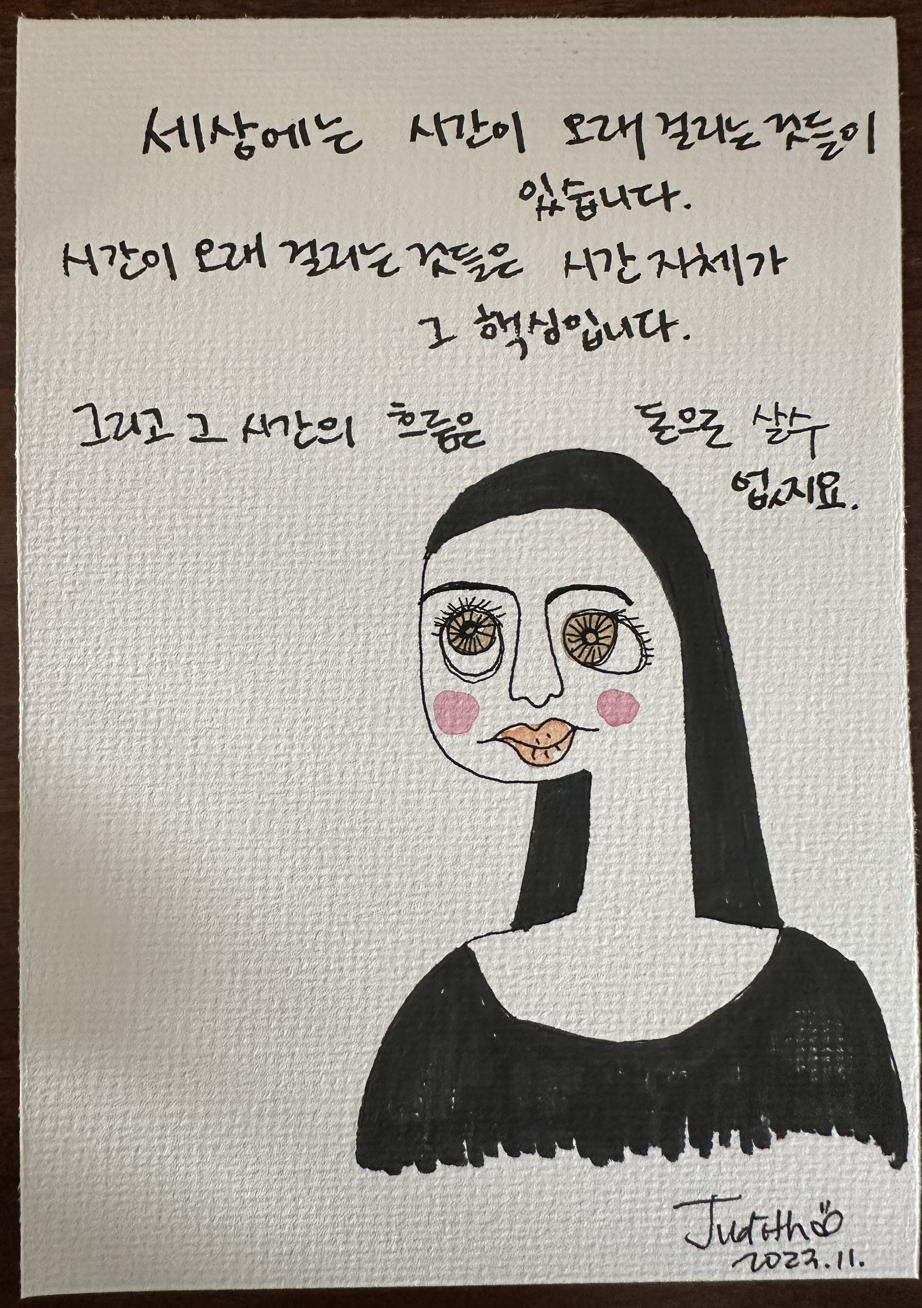 세상에는 시간이 오래 걸리는 것들이
있습니다.
시간이 오래 걸리는 것들은 시간 자체가
그 핵심입니다.
그리고 그 시간의 흐름은 돈으로 살수
없지요.
Judith
2023.11.